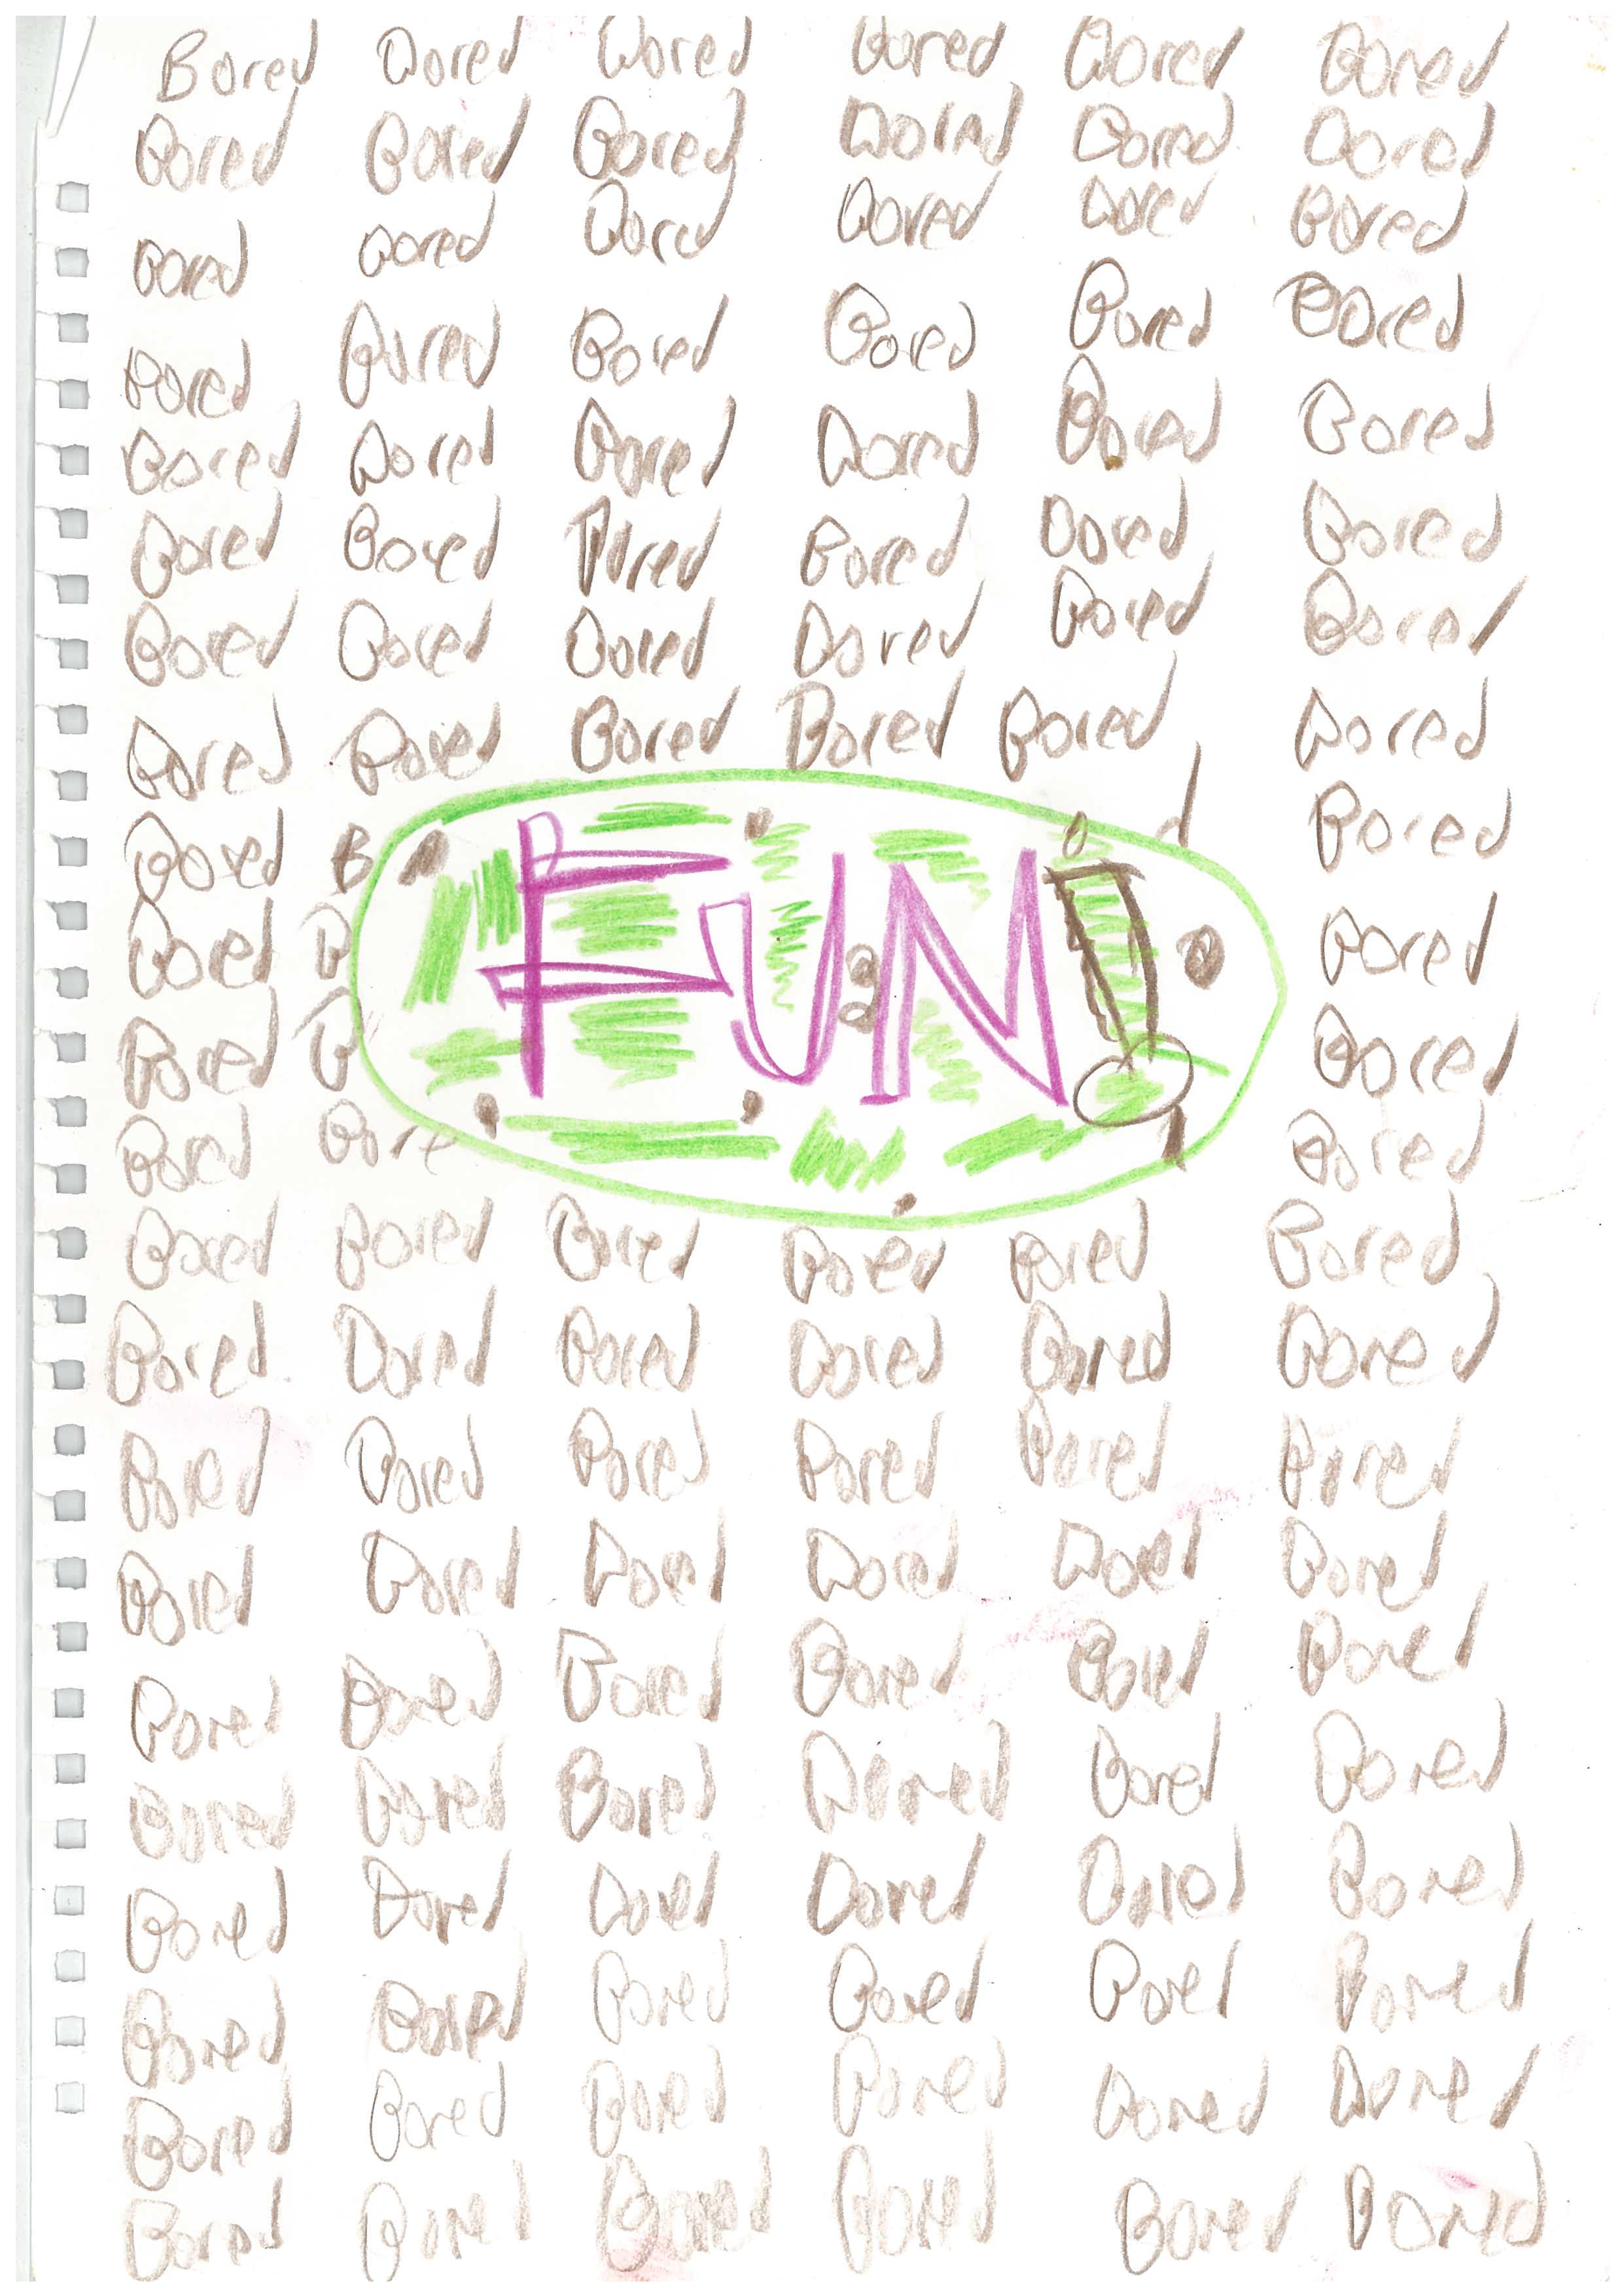 Bored Bored Bored Bored Bored Bored
Bored Bored Bored Bored Bored Bored
Bored Bored Bored Bored Bored Bored
Bored Bored Bored Bored Bored Bored
Bored Bored Bored Bored Bored Bored
Bored Bored Bored Bored Bored Bored
Bored Bored Bored Bored Bored Bored
Bored Bored Bored Bored Bored Bored
Bored B d Bored
Bored B FUN! Bored
Bored B Bored
Bored Bore Bored
Bored Bored Bored Bored Bored Bored
Bored Bored Bored Bored Bored Bored
Bored Bored Bored Bored Bored Bored
Bored Bored Bored Bored Bored Bored
Bored Bored Bored Bored Bored Bored
Bored Bored Bored Bored Bored Bored
Bored Bored Bored Bored Bored Bored
Bored Bored Bored Bored Bored Bored
Bored Bored Bored Bored Bored Bored
Bored Bored Bored Bored Bored Bored